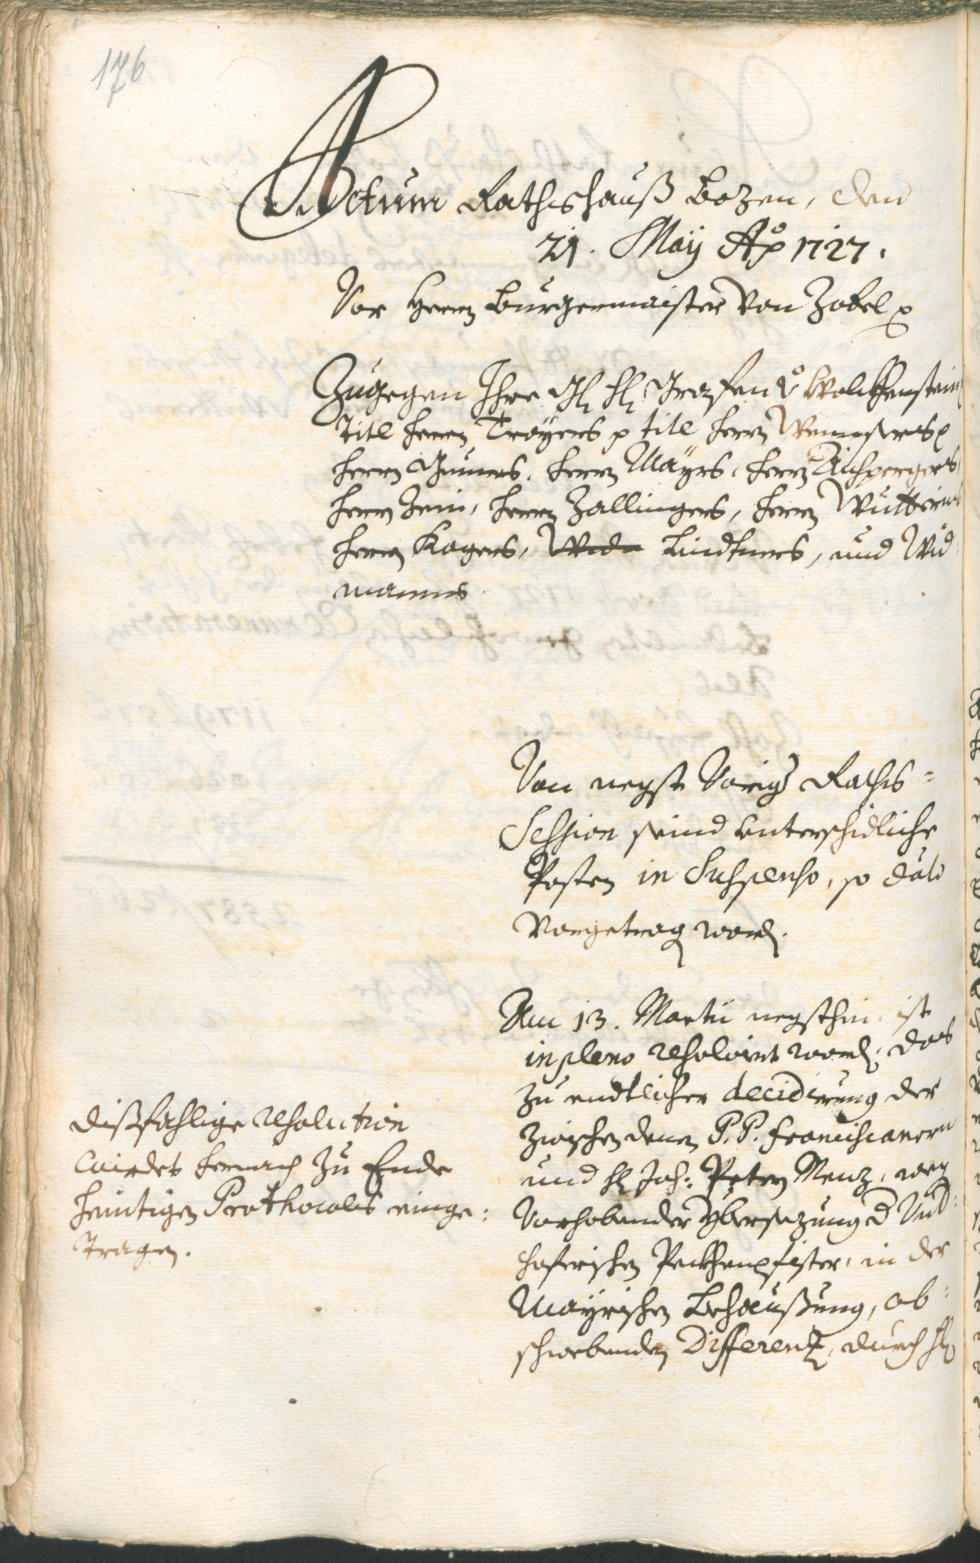 176
Actum Rathshauß Bozen, den
21. May Aõ 1727.
Vor Herrn Burgermaister Von Zobel p
Zugegen Ihre Gl hl Grafen v Wolckhenstein
Titl herrn Troyers p titl herrn
herrn Gumers, herrn Mayrs, herrn Aichpergers
herrn Zallingers, herrn
herrn Kagers, Lindtners, und Wid-
manns
Von negst Vorig Raths-
Session seind unterschidliche
Posten in Suspenso, so
Vorgetrag word.
Am 13. Martii negsthin ist
in pleno resolvirt word, das
zu endtlicher decidirung der
zwischen denen P.P. Franciscanern
und hl Joh: Petern Menz, weg
Vorhabender yberschzung d Und-
hoferischen Peckhenpfister, in der
Mayrischen Behaussung, ob-
schwebenden Differentz, durch hl
dißfahlige resolution
wirdet hernach zu Ende
heintigen Prothocols einge-
tragen.